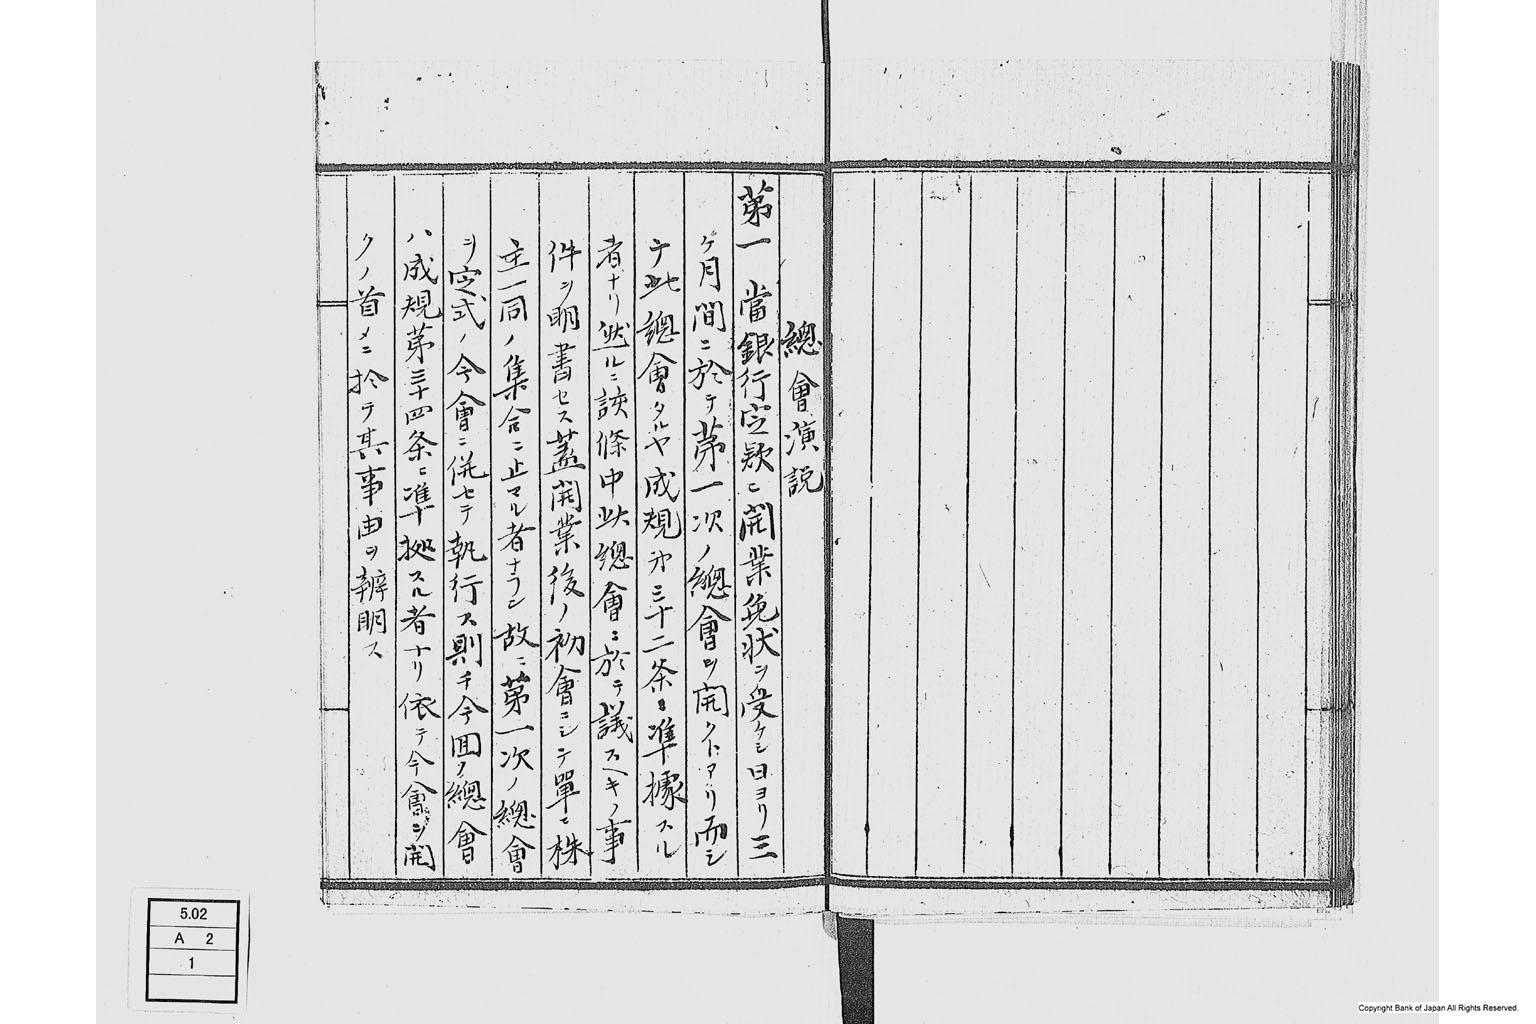 總會演説
第一　當銀行定款ニ開業免状ヲ受ケシ日ヨリ三
ケ月間ニ於テ第一次ノ總會ヲ開クトアリ而シ
テ此總會タルヤ成規第三十二条ニ準據スル
者ナリ然ルニ該條中此總會ニ於テ議スヘキノ事
件ヲ明書セス蓋開業後ノ初會ニシテ單ニ株
主一同ノ集合ニ止マル者ナラン故ニ第一次ノ總會
ヲ定式ノ今會ニ併セテ執行ス則チ今囬ノ總會
ハ成規第三十四条ニ準拠スル者ナリ依テ今會ヲ開
クノ首メニ於テ其事由ヲ辨明ス
5.02
A 2
1
Copyright Bank of Japan All Rights Reserved.